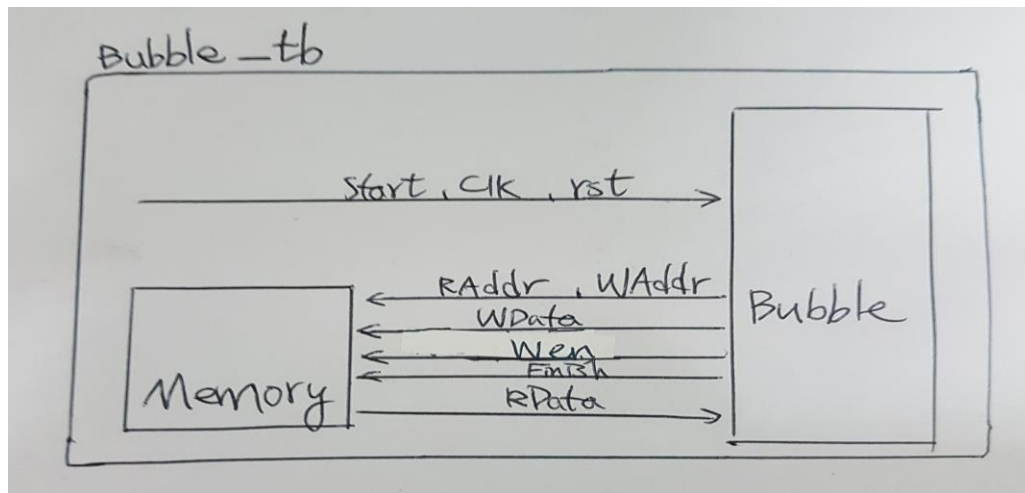 Bubble_tb
Start, Clk, rst
RAddr, WAddr
WData
Wen
Finish
RData
Memory
Bubble